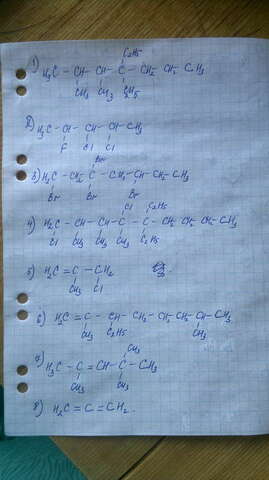 C₂H₅
1) H₃C - CH - CH - C - CH₂ - CH₂ - CH₃
CH₃ CH₃ C₂H₅
2) H₃C - CH - CH - CH - CH₃
F Cl Cl
Br
3) H₃C - CH₂ - C - CH₂ - CH - CH₂ - CH₃
Br Br Br
Cl C₂H₅
4) H₂C - CH - CH - C - C - CH₂ - CH₂ - CH₂ - CH₃
Cl CH₃ CH₃ CH₃ C₂H₅
5) H₂C = C - CH₂
CH₃ Cl
6) H₂C = C - CH - CH₂ - CH₂ - CH₂ - CH - CH₃
CH₃ C₂H₅ CH₃
CH₃
7) H₃C - C = CH - C - CH₃
CH₃ CH₃
8) H₂C = C = CH₂.